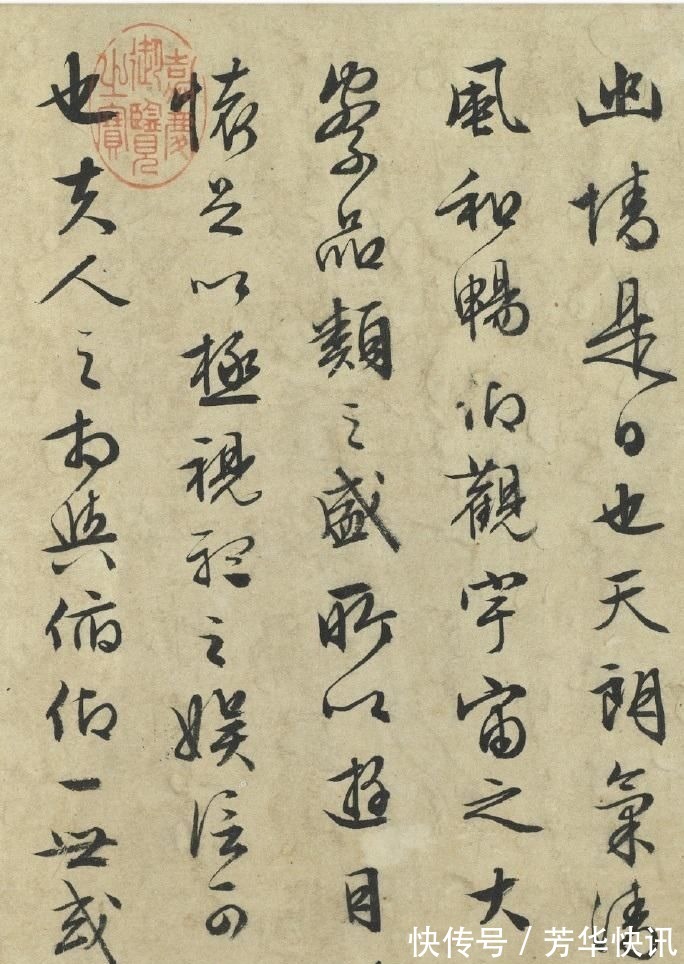 幽情是日也天朗氣清
風和暢仰觀宇宙之大
察品類之盛所以遊目
懷足以極視聽之娛信可
也夫人之相與俯仰一世或
嘉慶
御覽
之寶
快传号 / 芳华快讯